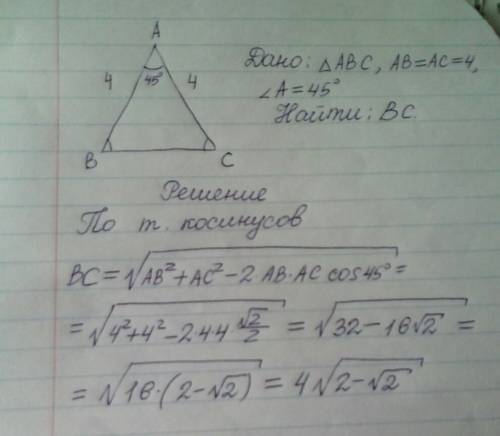 A
4 45° 4
B C
Дано: △ABC, AB=AC=4,
∠A=45°
Найти: BC.
Решение
По т. косинусов
BC=√(AB²+AC²-2·AB·AC cos45°)=
=√(4²+4²-2·4·4 √2/2) = √(32-16√2) =
=√(16·(2-√2)) = 4√(2-√2)